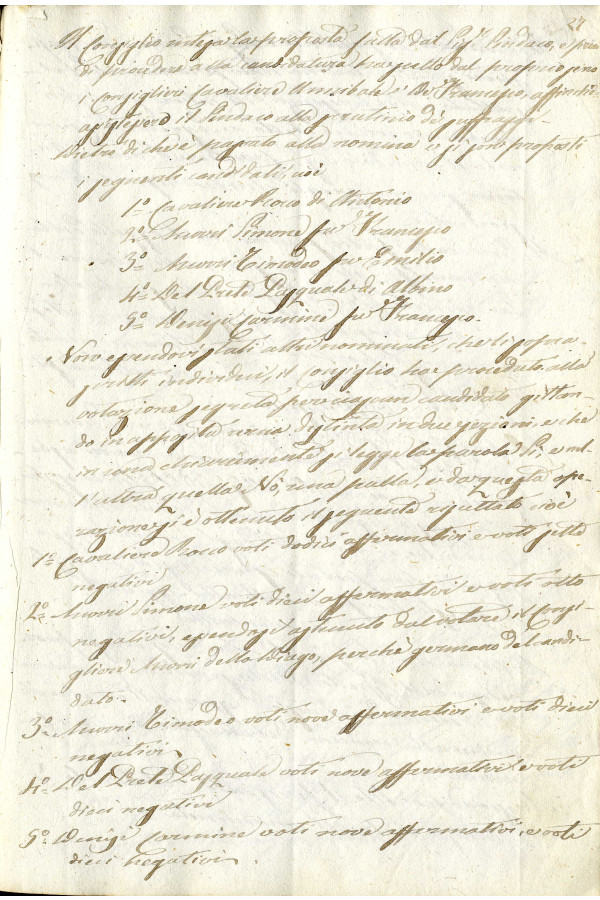 27
Il Consiglio intesa la proposta fatta dal Sig.r Sindaco, e prima
di procedere alla candidatura ha scelto dal proprio seno
i Consiglieri Cavaliere Annibale e De Francesco, affinchè
assistessero il Sindaco allo scrutinio de' suffraggi.
Dietro di che è passato alla nomina e si sono proposti
i seguenti candidati, cioè
1.º Cavaliere Rocco di Antonio
2.º Murri Simone fu Francesco
3.º Murri Timodeo fu Emilio
4.º Del Prete Pasquale di Albino
5.º Denisi Carmine fu Francesco.
Non essendovi stati altri nominati, che li sopra-
scritti individui, il Consiglio ha proceduto alla
votazione segreta per ciascun candidato gittan-
do in apposita urna distinta in due sezioni, e che
in una chiaramente si legge la parola Si, e nel-
l'altra quella No, una palla, e da questa ope-
razione si è ottenuto il seguente risultato cioè
1.º Cavaliere Rocco voti dodici affermativi e voti sette
negativi
2.º Murri Simone voti dieci affermativi e voti otto
negativi, essendosi astenuto dal votare il Consi-
gliere Murri della Biago, perchè germano del candi-
dato.
3.º Murri Timodeo voti nove affermativi e voti dieci
negativi
4.º Del Prete Pasquale voti nove affermativi e voti
dieci negativi
5.º Denisi Carmine voti nove affermativi, e voti
dieci negativi.